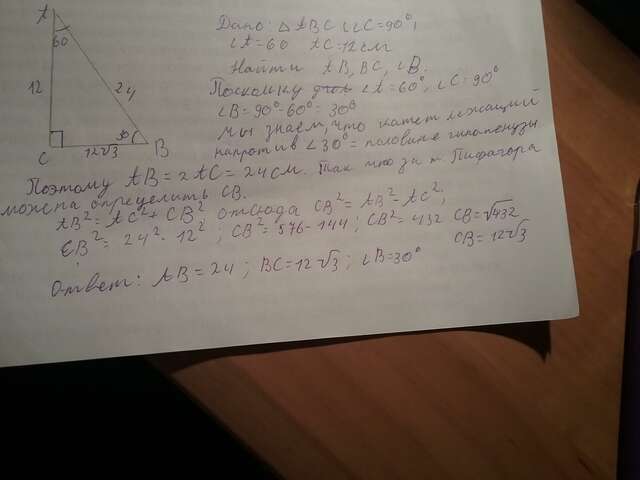 A
60
12
24
30
C
12√3
B
Дано: △ABC ∠C=90°,
∠A=60 AC=12см
Найти AB, BC, ∠B.
Поскольку ∠A=60°, ∠C=90°
∠B=90°-60°=30°
мы знаем, что катет лежащий
напротив ∠30°= половине гипотенузы
Поэтому AB=2AC=24см. Так что за т. Пифагора
можна определить CB.
AB²=AC²+CB² отсюда CB²=AB²-AC²;
CB²=24²-12²; CB²=576-144; CB²=432 CB=√432
CB=12√3
Ответ: AB=24; BC=12√3; ∠B=30°